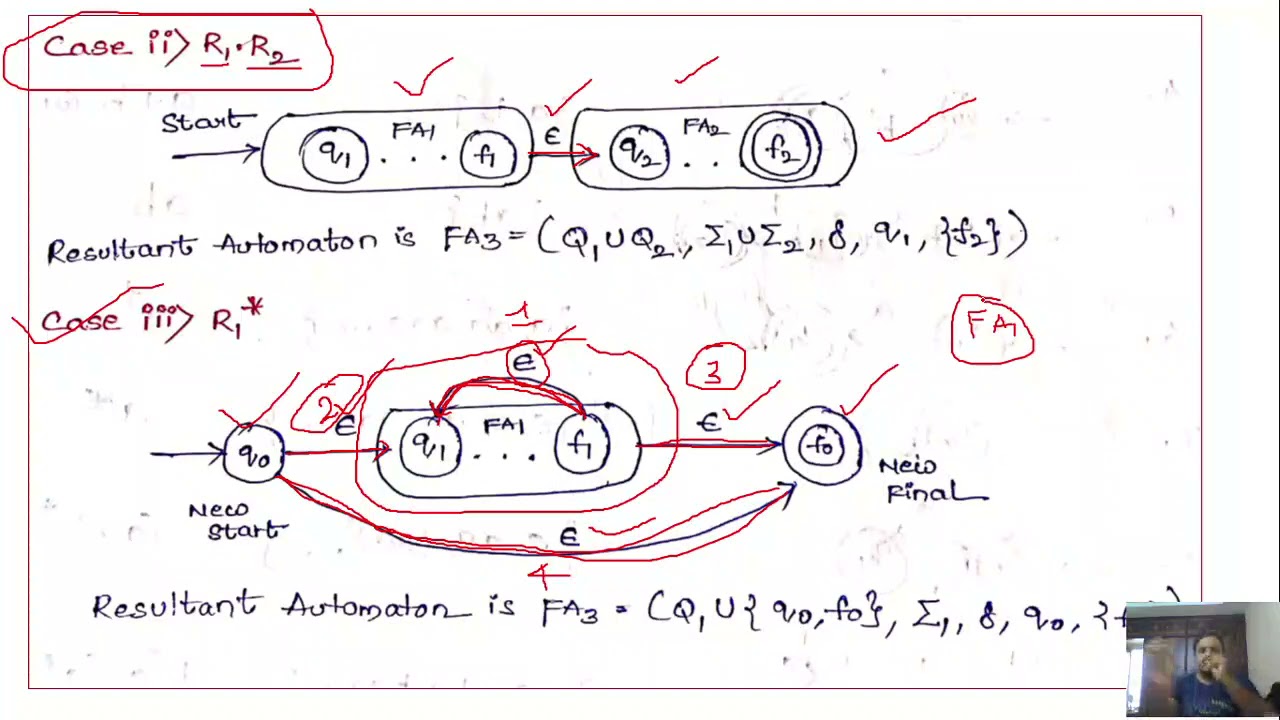 Case ii> R₁·R₂
Start
FA1
ϵ
FA2
q₁ . . . f₁
q₂ . . f₂
Resultant Automaton is FA3 = (Q₁∪Q₂, Σ₁∪Σ₂, δ, q₁, {f₂})
Case iii> R₁*
1
FA₁
ϵ
3
2
ϵ
FA1
ϵ
q₀
q₁ . . . f₁
f₀
New Start
New Final
ϵ
4
Resultant Automaton is FA3 = (Q₁∪{q₀,f₀}, Σ₁, δ, q₀, {